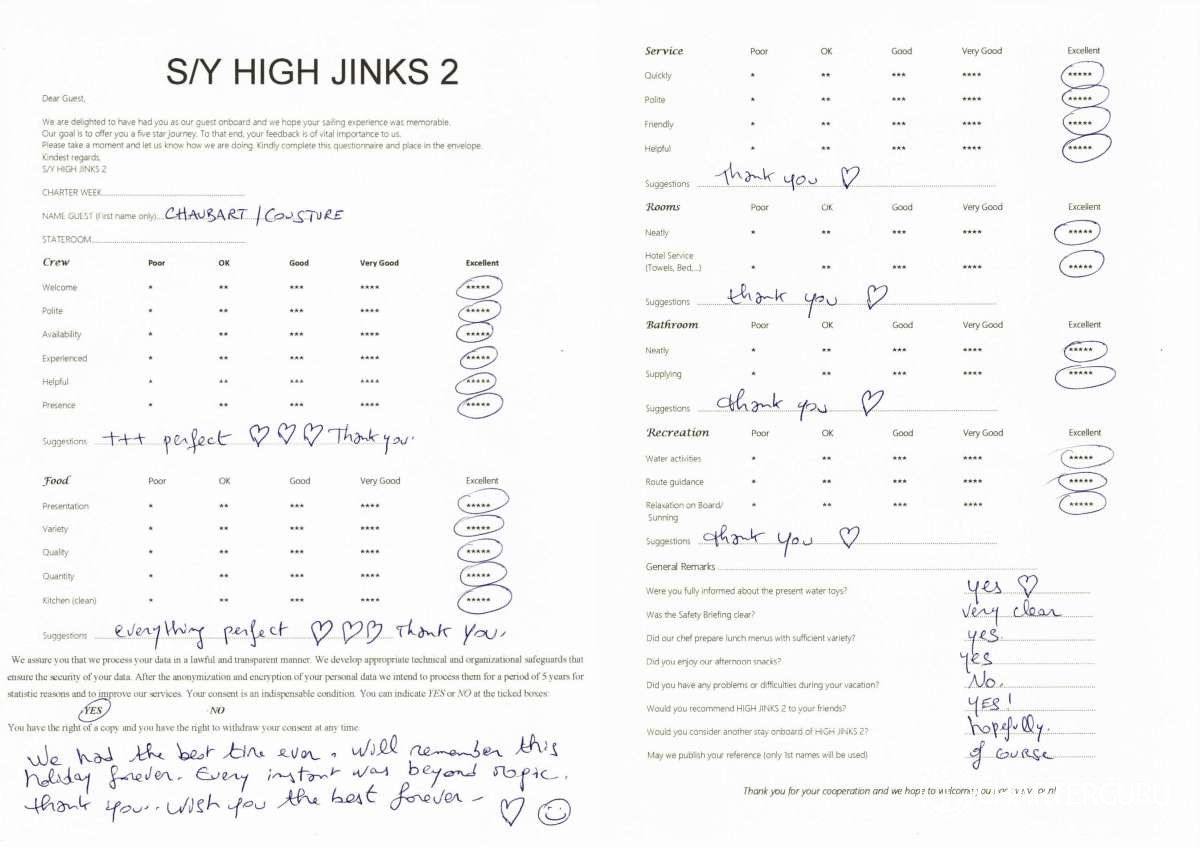 S/Y HIGH JINKS 2
Dear Guest,
We are delighted to have had you as our guest onboard and we hope your sailing experience was memorable.
Our goal is to offer you a five star journey. To that end, your feedback is of vital importance to us.
Please take a moment and let us know how we are doing. Kindly complete this questionnaire and place in the envelope.
Kindest regards,
S/Y HIGH JINKS 2
CHARTER WEEK
NAME GUEST (First name only) CHAUBART / COUSTURE
STATEROOM
Crew Poor OK Good Very Good Excellent
Welcome * ** *** **** *****
Polite * ** *** **** *****
Availability * ** *** **** *****
Experienced * ** *** **** *****
Helpful * ** *** **** *****
Presence * ** *** **** *****
Suggestions +++ perfect ♡ ♡ ♡ Thank you.
Food Poor OK Good Very Good Excellent
Presentation * ** *** **** *****
Variety * ** *** **** *****
Quality * ** *** **** *****
Quantity * ** *** **** *****
Kitchen (clean) * ** *** **** *****
Suggestions everything perfect ♡ ♡ ♡ Thank you.
We assure you that we process your data in a lawful and transparent manner. We develop appropriate technical and organizational safeguards that
ensure the security of your data. After the anonymization and encryption of your personal data we intend to process them for a period of 5 years for
statistic reasons and to improve our services. Your consent is an indispensable condition. You can indicate YES or NO at the ticked boxes:
YES NO
You have the right of a copy and you have the right to withdraw your consent at any time.
We had the best time ever. Will remember this
holiday forever. Every instant was beyond magic.
thank you.. Wish you the best forever - ♡ ☺
Service Poor OK Good Very Good Excellent
Quickly * ** *** **** *****
Polite * ** *** **** *****
Friendly * ** *** **** *****
Helpful * ** *** **** *****
Suggestions Thank you ♡
Rooms Poor OK Good Very Good Excellent
Neatly * ** *** **** *****
Hotel Service
(Towels, Bed,...) * ** *** **** *****
Suggestions thank you ♡
Bathroom Poor OK Good Very Good Excellent
Neatly * ** *** **** *****
Supplying * ** *** **** *****
Suggestions thank you ♡
Recreation Poor OK Good Very Good Excellent
Water activities * ** *** **** *****
Route guidance * ** *** **** *****
Relaxation on Board/ * ** *** **** *****
Sunning
Suggestions thank you ♡
General Remarks
Were you fully informed about the present water toys? yes ♡
Was the Safety Briefing clear? very clear
Did our chef prepare lunch menus with sufficient variety? yes.
Did you enjoy our afternoon snacks? yes
Did you have any problems or difficulties during your vacation? No.
Would you recommend HIGH JINKS 2 to your friends? YES!
Would you consider another stay onboard of HIGH JINKS 2? hopefully.
May we publish your reference (only 1st names will be used) of course
Thank you for your cooperation and we hope to welcome you